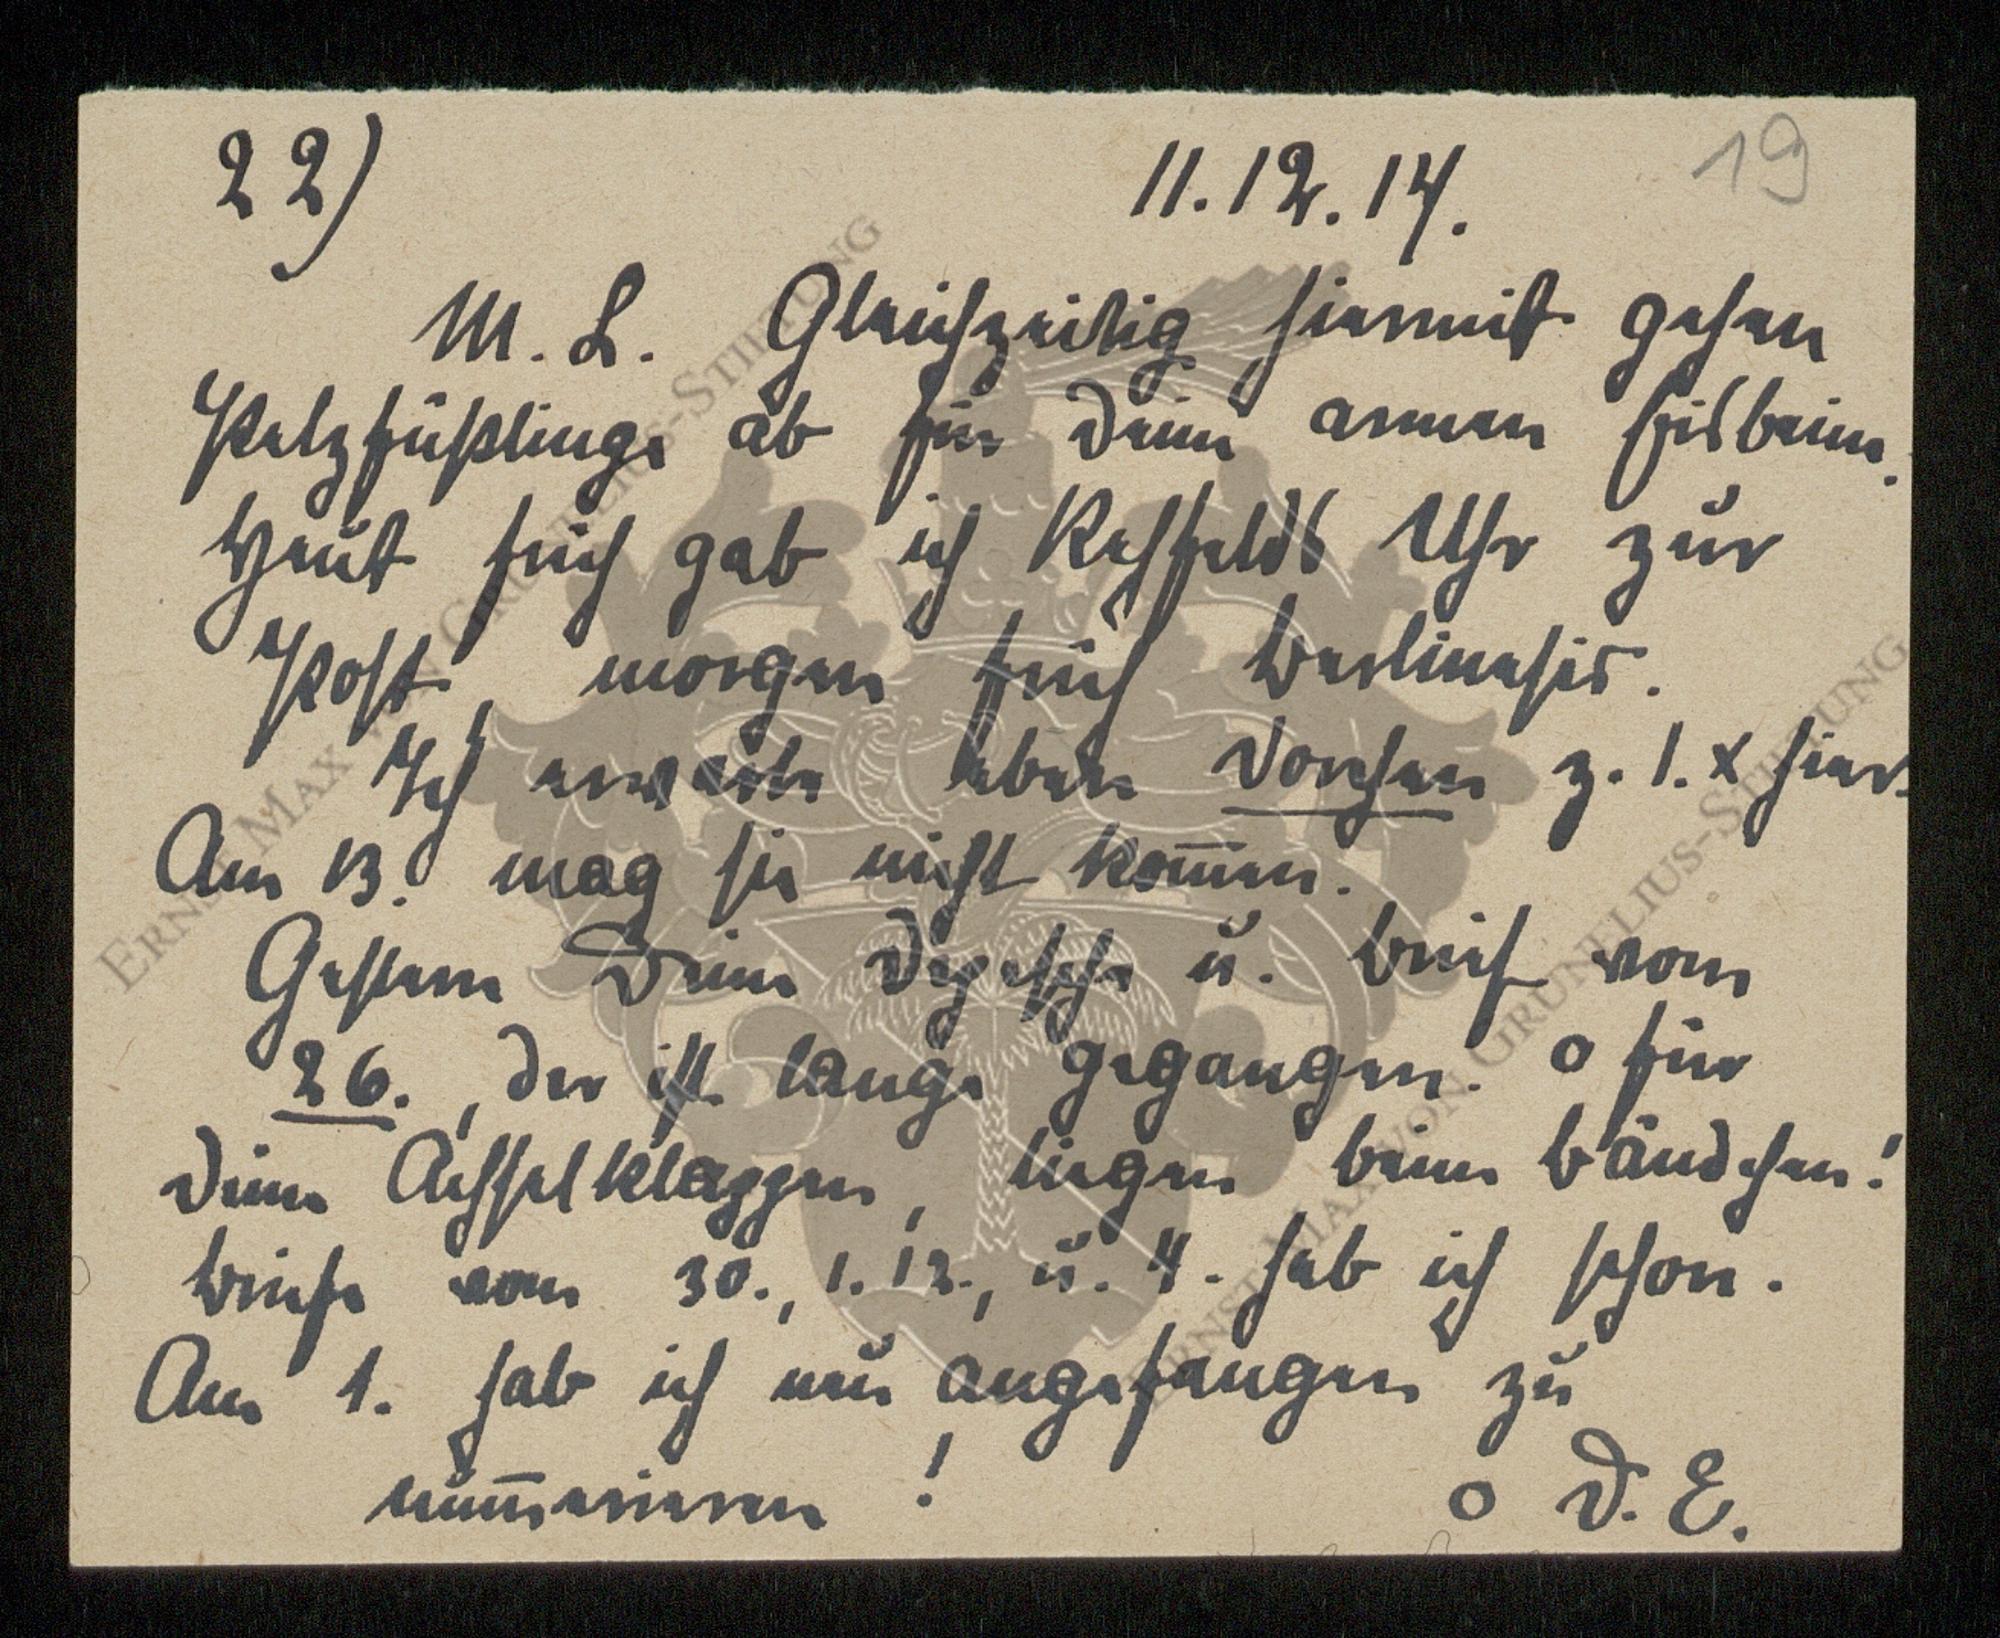 22) 11.12.14. 19
M. L. Gleichzeitig hiermit gehen
Pelzfüßlinge ab für Deine armen Eisbeine.
Heut früh gab ich Rehfeldts Uhr zur
Post, morgen früh
Ich erwarte eben Dorchen z. 1. x hier.
Am 13. mag sie nicht kom̅en.
Gestern Deine Depesche u. Brief vom
26., der ist lange gegangen. o für
Deine Achselklappen, liegen beim Bändchen!
Briefe vom 30., 1.12., u. 4. hab ich schon.
Am 1. hab ich neu angefangen zu
num̅erieren! o D. E.
ERNST MAX VON GRUNELIUS-STIFTUNG
ERNST MAX VON GRUNELIUS-STIFTUNG